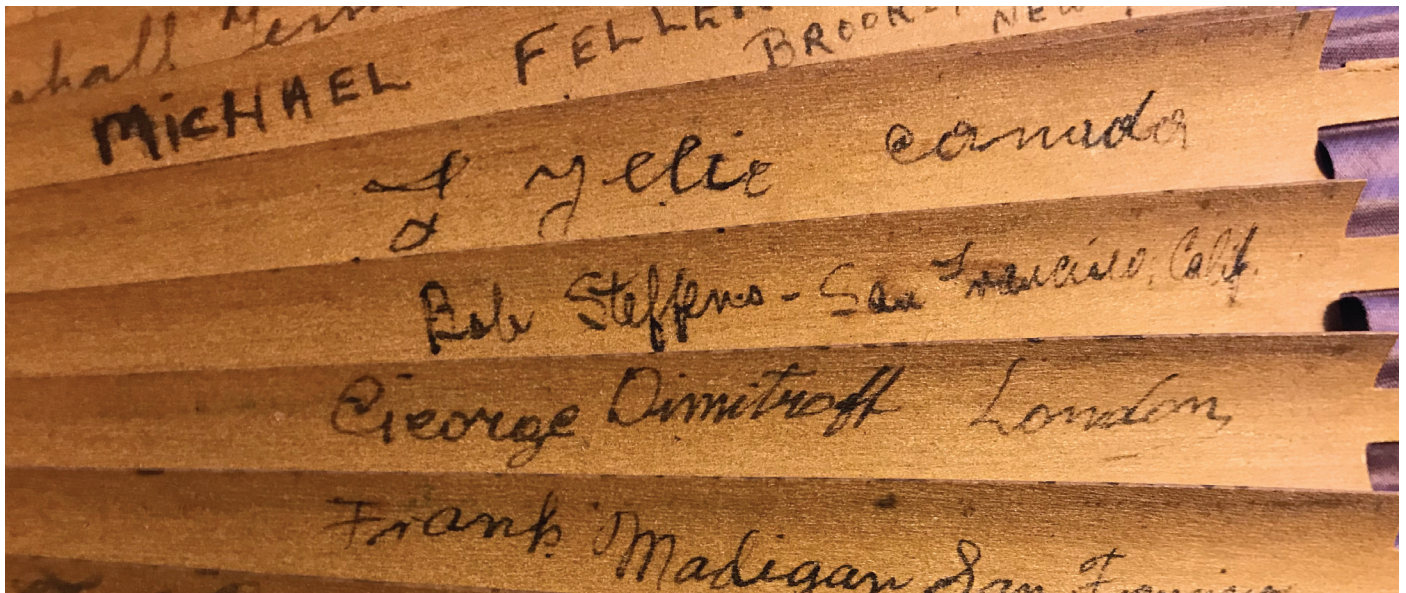 MiCHAEL
BROOK
NEW
Yelie Canada
Bob Steffens - San Francisco, Calif.
George Dimitroff London
Frank Madigan San Francisco